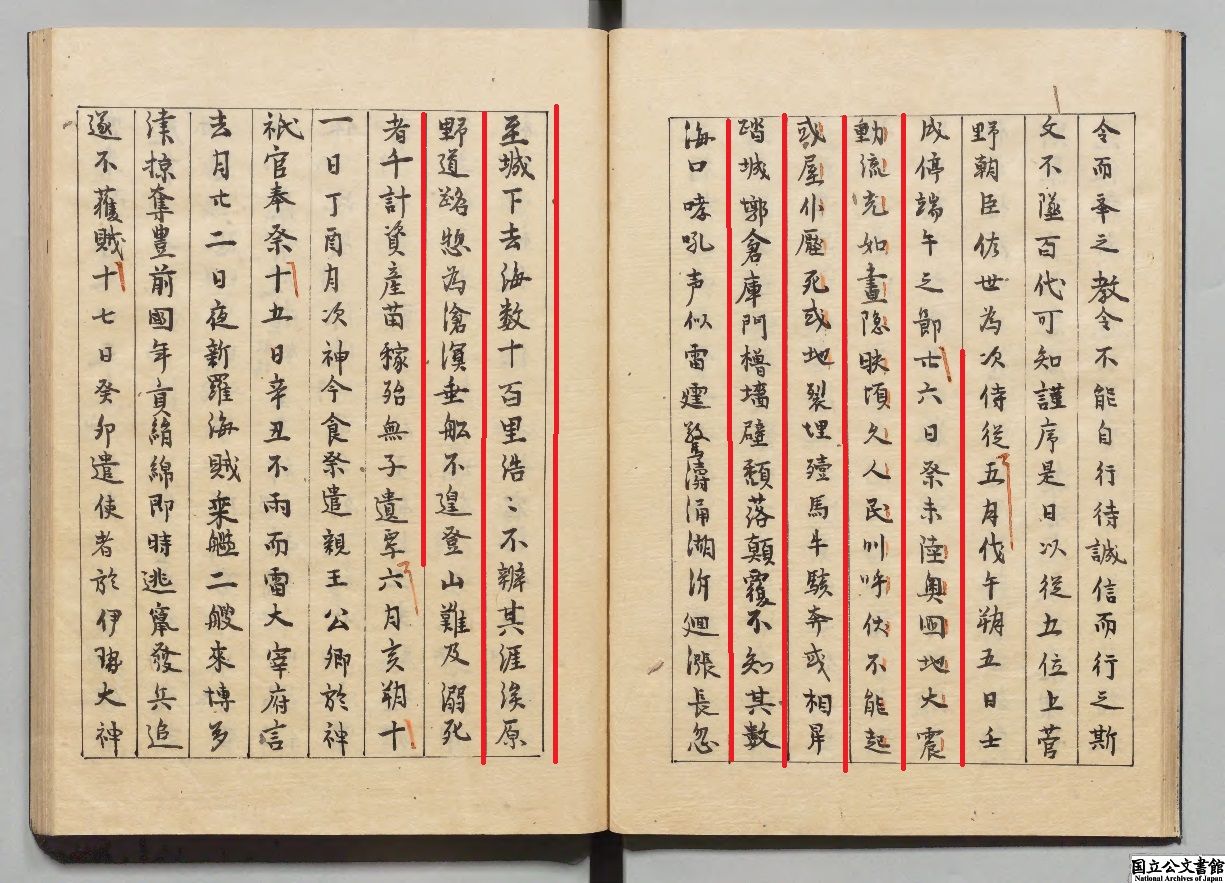 令而奉之教令不能自行待誠信而行之斯
文不墜百代可知謹序是日以從五位上菅
野朝臣佐世為次侍從五月戊午朔五日壬
戌停端午之節廿六日癸未陸奥國地大震
動流光如晝隠映頃久人民叫呼伏不能起
或屋仆壓死或地裂埋殪馬牛駭奔或相昇
踏城墎倉庫門櫓墻壁頽落顛覆不知其數
海口哮吼声似雷霆驚濤涌潮泝𢌞漲長忽
至城下去海数十百里浩〻不辨其涯涘原
野道路惣為滄溟乗舩不遑登山難及溺死
者千計資産苗稼殆無孑遺焉六月亥朔十
一日丁酉月次神今食祭遣親王公卿於神
祇官奉祭十五日辛丑不雨而雷大宰府言
去月廿二日夜新羅海賊乗艦二艘來博多
津掠奪豊前國年貢絹綿即時逃竄發兵追
遂不獲賊十七日癸卯遣使者於伊勢大神
国立公文書館
National Archives of Japan